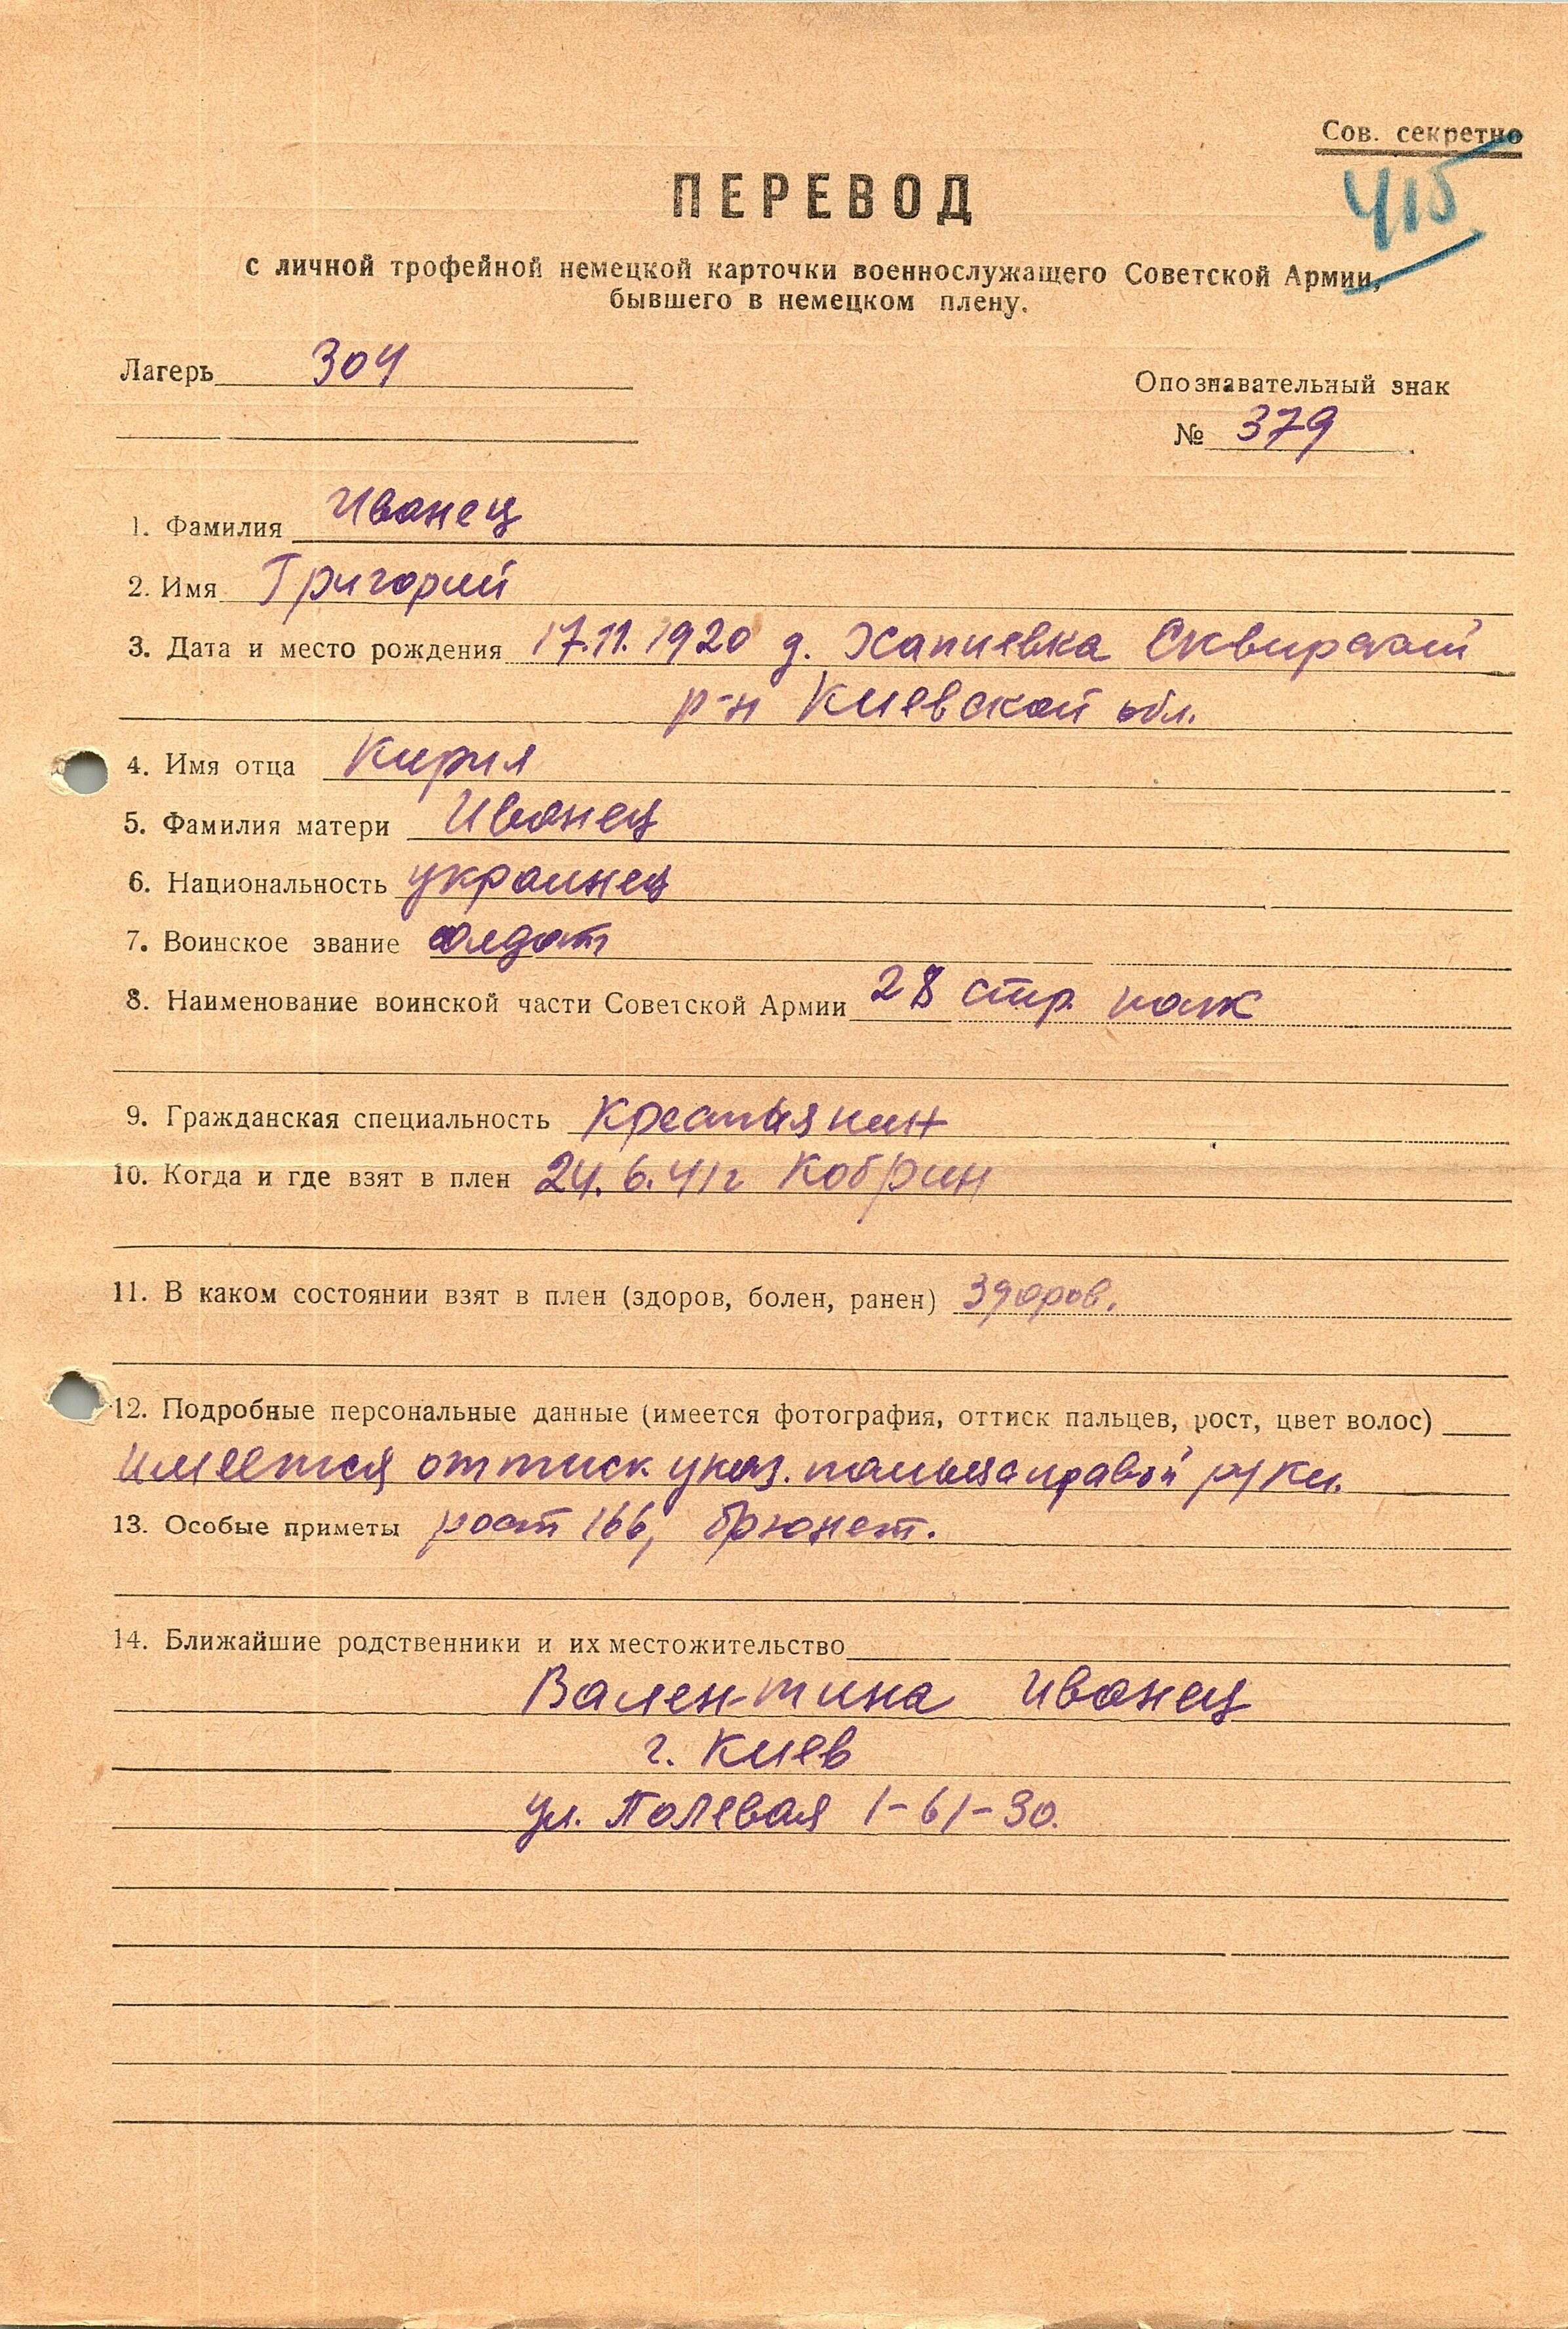 Сов. секретно
415
ПЕРЕВОД
с личной трофейной немецкой карточки военнослужащего Советской Армии,
бывшего в немецком плену.
Лагерь 304
Опознавательный знак
№ 379
1. Фамилия Иванец
2. Имя Григорий
3. Дата и место рождения 17.11.1920 д. Хапиевка Сквирский
р-н Киевской обл.
4. Имя отца Кирил
5. Фамилия матери Иванец
6. Национальность украинец
7. Воинское звание солдат
8. Наименование воинской части Советской Армии 28 стр. полк
9. Гражданская специальность Крестьянин
10. Когда и где взят в плен 24.6.41г Кобрин
11. В каком состоянии взят в плен (здоров, болен, ранен) Здоров.
12. Подробные персональные данные (имеется фотография, оттиск пальцев, рост, цвет волос)
имеется оттиск указ. пальца правой руки.
13. Особые приметы рост 166, брюнет.
14. Ближайшие родственники и их местожительство
Валентина Иванец
г. Киев
ул. Полевая 1-61-30.